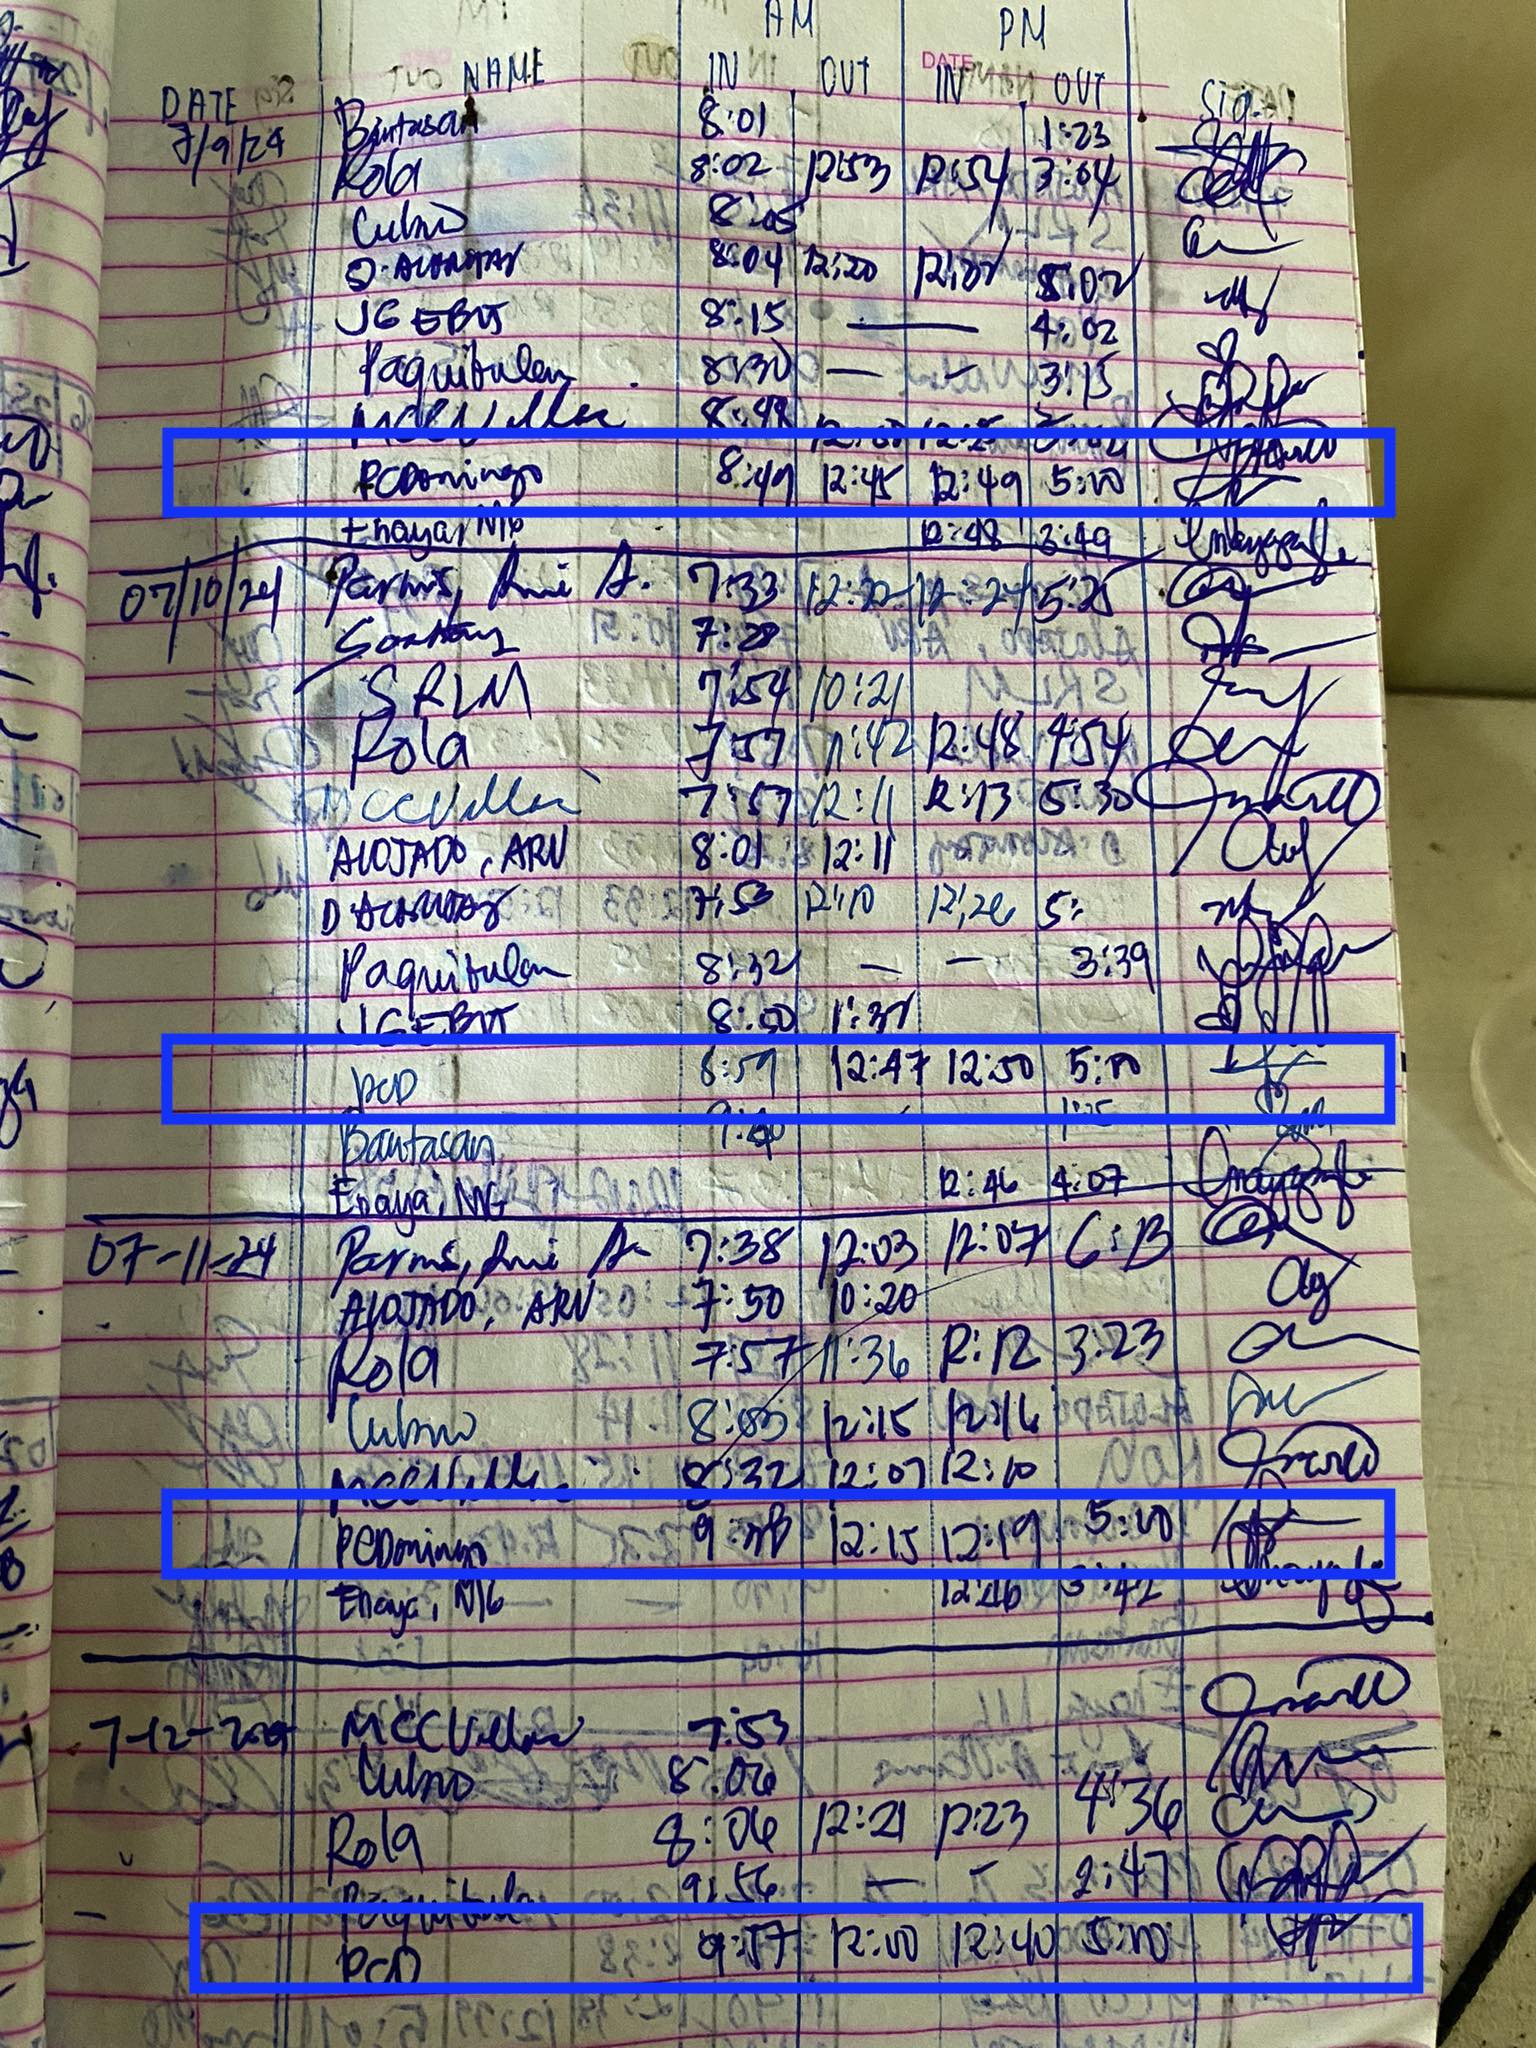 AM PM
DATE NAME IN OUT IN OUT Sig.
7/9/24 Bantasan 8:01 1:23
Rola 8:02 12:53 12:54 3:04
Cubno 8:05
8:04 12:20 5:02
JGEBUT 8:15 — 4:02
Paquibulan 8:30 — – 3:15
MCCVillar 8:48
PCDomingo 8:49 12:45 12:49 5:00
Enaya, MG 12:48 3:49
07/10/24 7:33 5:25
7:28
SRLM 7:54 10:21
Rola 7:57 11:42 12:48 4:54
MCCVillar 7:57 12:11 12:13 5:30
ALOJADO, ARN 8:01 12:11
7:53 12:10 12:26 5:
Paquibulan 8:32 — – 3:39
JGEBUT 8:50
PCD 8:59 12:47 12:50 5:00
Bantasan
Enaya, MG 12:46 4:07
07-11-24 7:38 12:03 12:07 6:13
ALOJADO, ARN 7:50 10:20
Rola 7:57 11:36 12:12 3:23
Cubno 8:03 12:15 12:16
MCCVillar 8:32 12:07 12:10
PCDomingo 12:15 12:19 5:00
Enaya, MG 12:46 3:42
7-12-2024 MCCVillar 7:53
Cubno 8:06
Rola 8:06 12:21 12:23 4:36
Paquibulan 9:56 — – 2:47
PCD 9:57 12:00 12:40 5:00